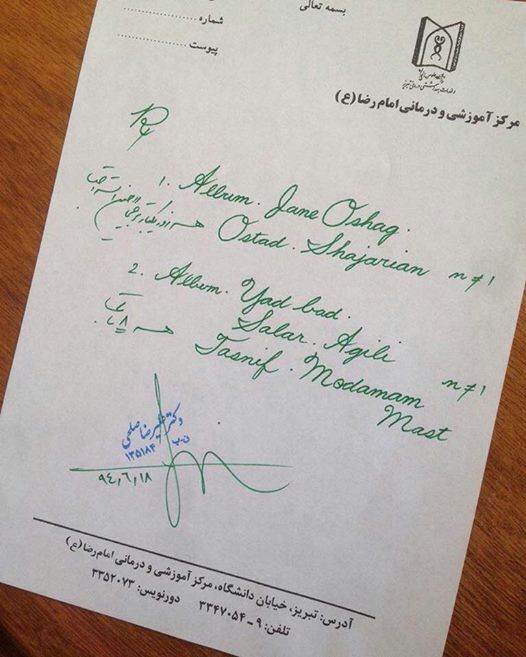 بسمه تعالی
شماره
پیوست
مرکز آموزشی و درمانی امام رضا (ع)
1. Album. Jane Oshaq.
Ostad. Shajarian n≠1
2. Album. Yad bad.
Salar. Agili
Tasnif. Modamam n≠1
Mast
دکتر علیرضا صلحی
ن.پ ۱۳۵۱۸۴
۹۴,۶,۱۸
آدرس: تبریز، خیابان دانشگاه، مرکز آموزشی و درمانی امام رضا (ع)
تلفن: ۹ - ۳۳۴۷۰۵۴ دورنویس: ۳۳۵۲۰۷۳